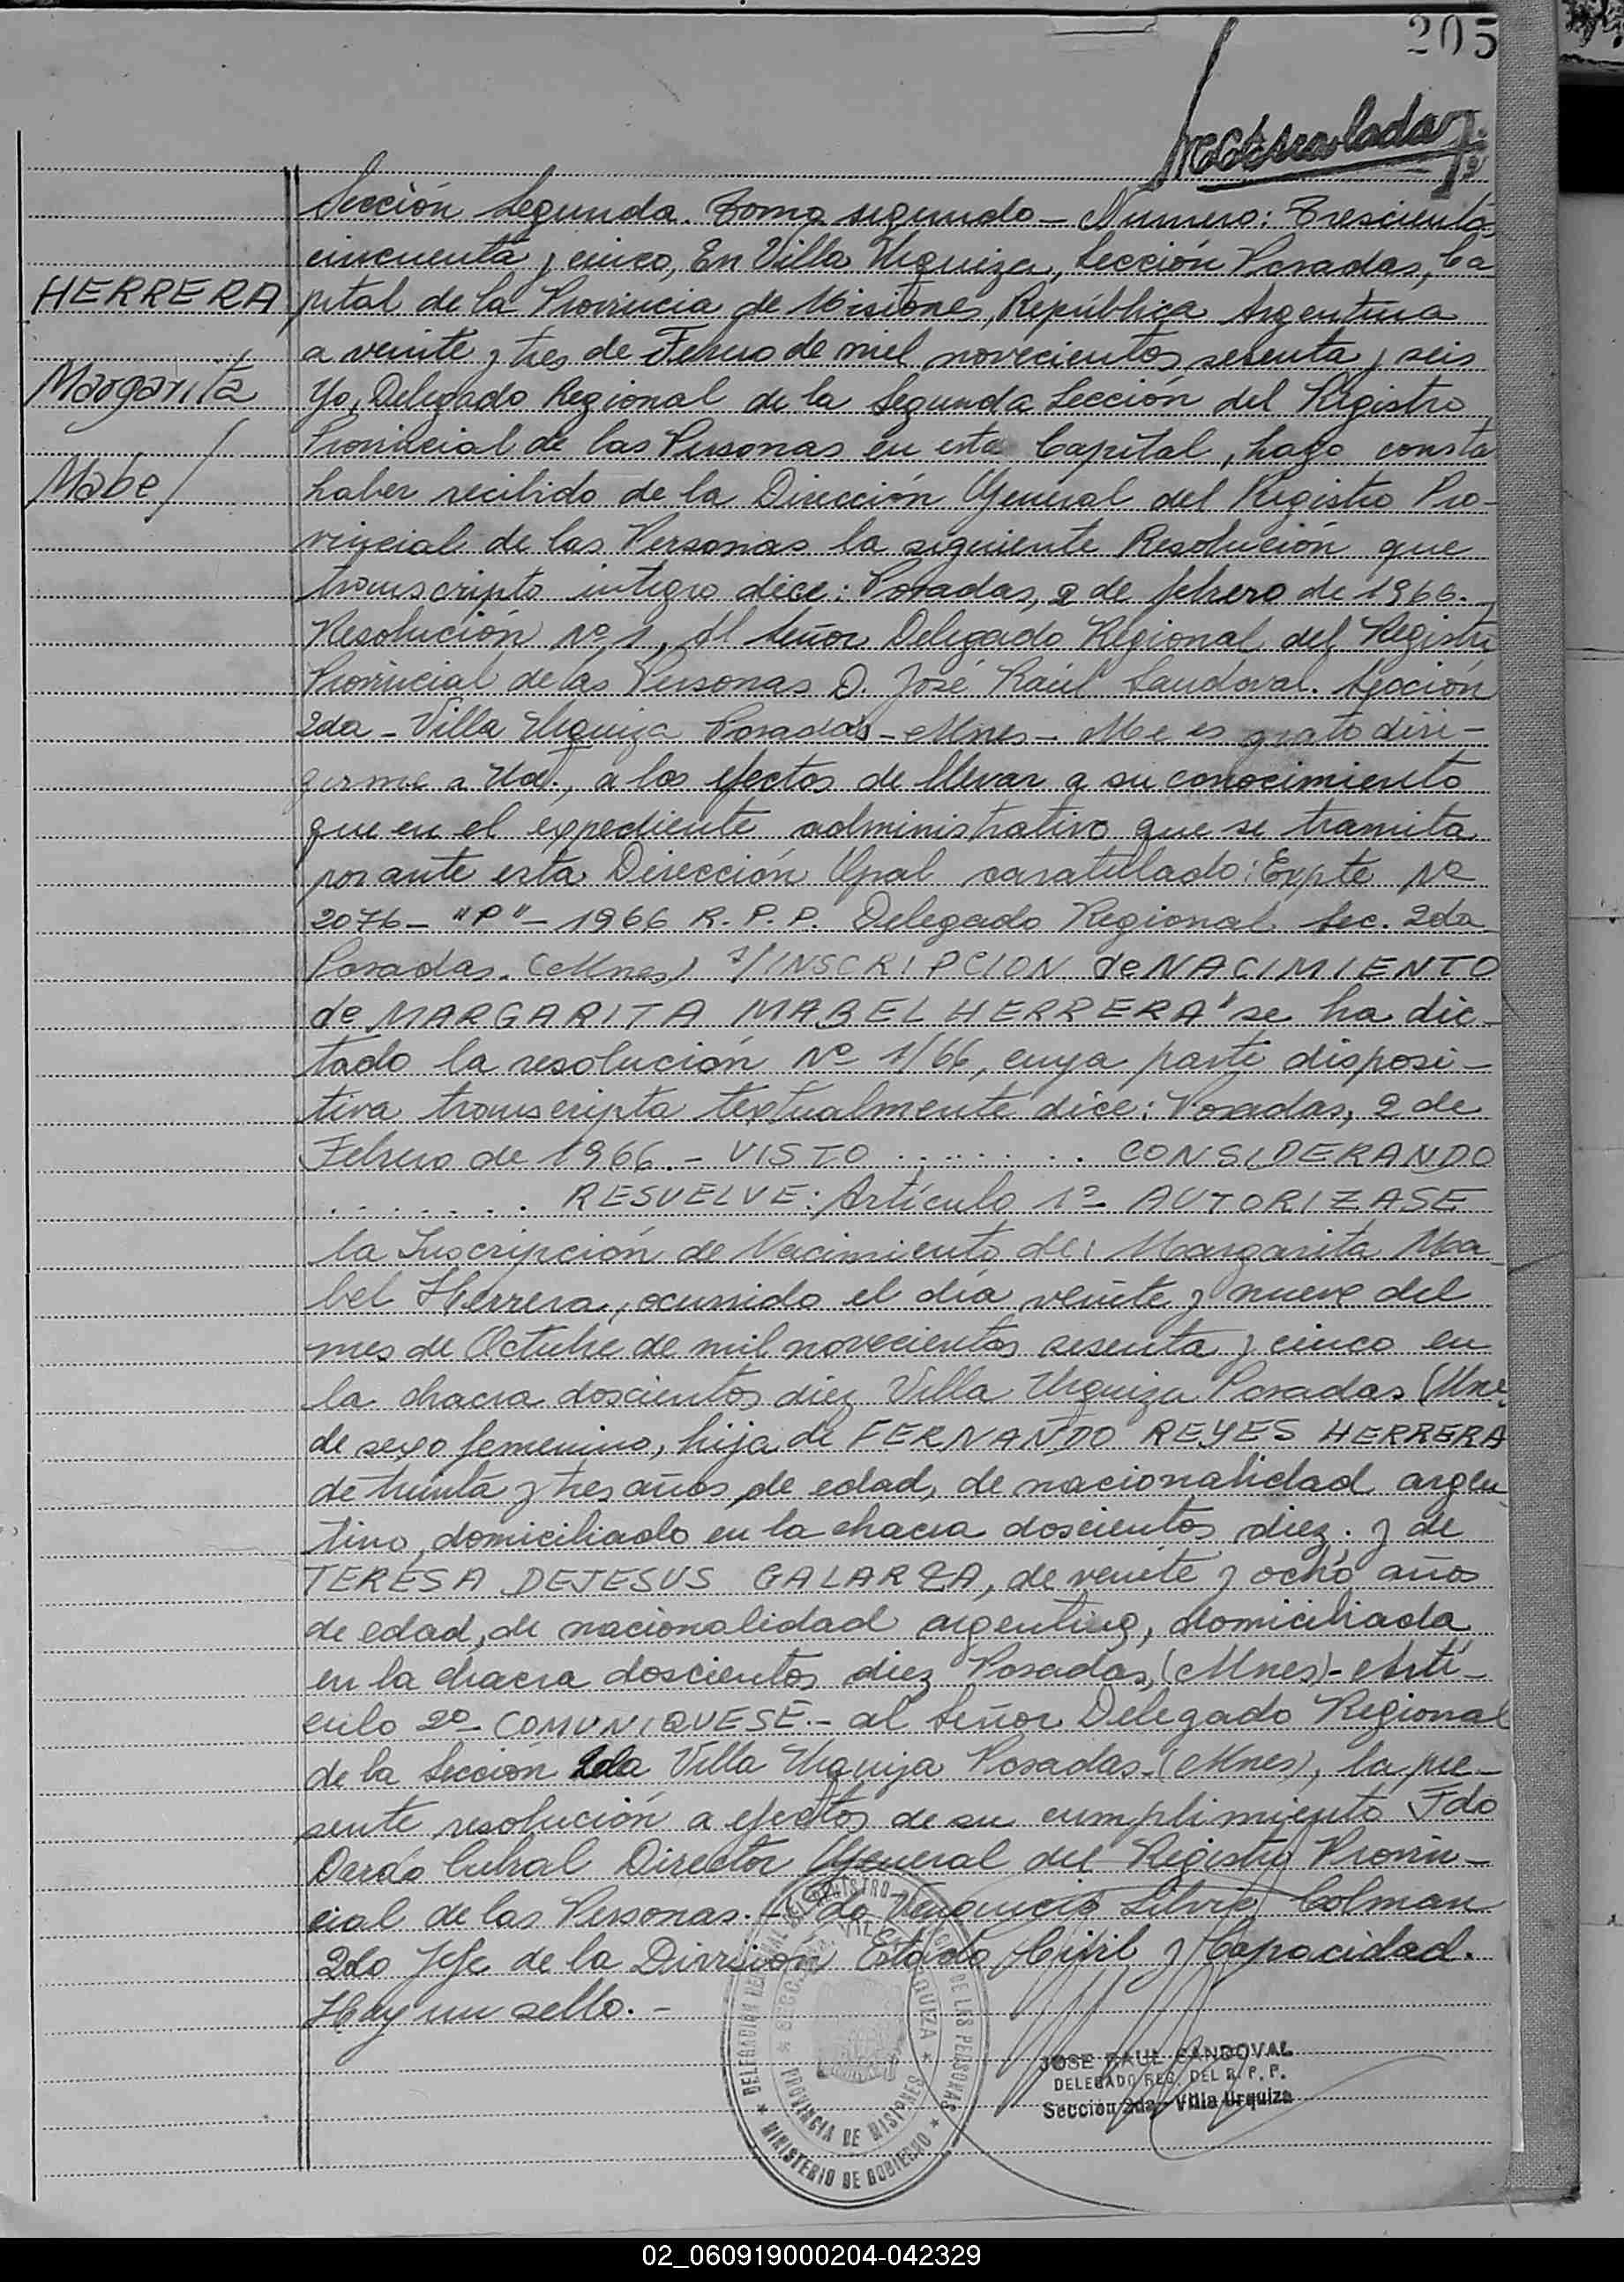 205
Sección Segunda. Tomo segundo - Numero: Trescientos
cincuenta y cinco, En Villa Urquiza, Sección Posadas, Ca
HERRERA
pital de la Provincia de Misiones, República Argentina
a veinte y tres de Febrero de mil novecientos sesenta y seis
Margarita
Yo, Delegado Regional de la Segunda Sección del Registro
Provincial de las Personas en esta Capital, hago consta
Mabel
haber recibido de la Dirección General del Registro Pro-
vincial de las Personas la siguiente Resolución que
transcripto integro dice: Posadas, 2 de febrero de 1966.-
Resolución Nº 1. Al Señor Delegado Regional del Registro
Provincial de las Personas D. José Raúl Sandoval. Sección
2da - Villa Urquiza Posadas - Mnes - Me es grato diri-
girme a Ud., a los efectos de llevar a su conocimiento
que en el expediente administrativo que se tramita
por ante esta Dirección Gral caratulado: Expte Nº
2076 - "P" - 1966 R. P. P. Delegado Regional Sec. 2da
Posadas. (Mnes) s/INSCRIPCION de NACIMIENTO
de MARGARITA MABEL HERRERA" se ha dic-
tado la resolución Nº 1/66, cuya parte disposi-
tiva transcripta textualmente dice: Posadas, 2 de
Febrero de 1966.- VISTO ........ CONSIDERANDO
....... RESUELVE: Artículo 1º- AUTORIZASE
la Inscripción de Nacimiento de: Margarita Ma
bel Herrera, ocurrido el día veinte y nueve del
mes de Octubre de mil novecientos sesenta y cinco en
la chacra doscientos diez Villa Urquiza Posadas (Mne
de sexo femenino, hija de FERNANDO REYES HERRERA
de treinta y tres años de edad, de nacionalidad argen
tino, domiciliado en la chacra doscientos diez; y de
TERESA DEJESUS GALARZA, de veinte y ocho años
de edad, de nacionalidad argentina, domiciliada
en la chacra doscientos diez Posadas, (Mnes)- Artí-
culo 2º- COMUNIQUESE.- al Señor Delegado Regional
de la Sección 2da Villa Urquiza Posadas-(Mnes), la pre-
sente resolución a efectos de su cumplimiento Fdo
Dardo Cabral Director General del Registro Provin-
cial de las Personas.- Fdo Silvio Colman
2do Jefe de la División Estado Civil y Capacidad.
Hay un sello.-
DELEGACION DEL REGISTRO DE LAS PERSONAS
MINISTERIO DE GOBIERNO
PROVINCIA DE MISIONES
JOSE RAUL SANDOVAL
DELEGADO REG. DEL R. P. P.
Sección 2da.- Villa Urquiza
02_060919000204-042329